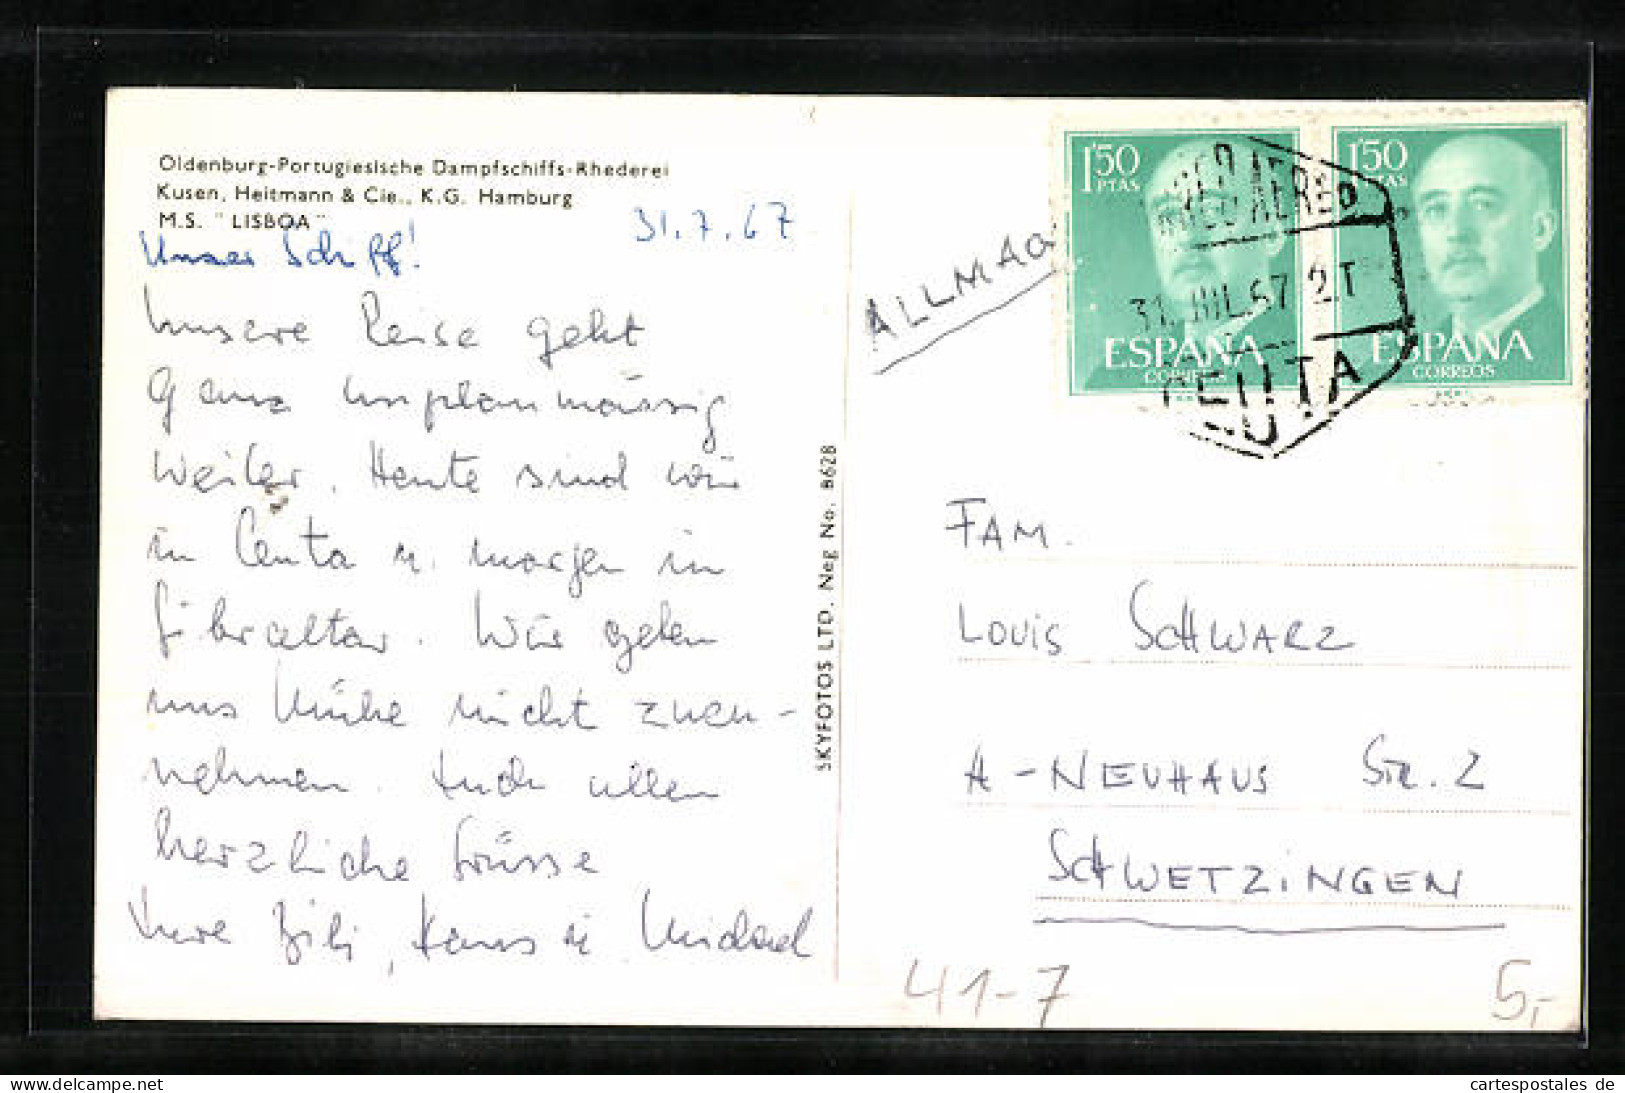 Oldenburg-Portugiesische Dampfschiffs-Rhederei
Kusen, Heitmann & Cie., K.G. Hamburg
M.S. "LISBOA"
31.7.67
Unser Schiff!
Unsere Reise geht
ganz unplanmässig
weiter. Heute sind wir
in Ceuta u. morgen in
Gibraltar. Wir geben
uns Mühe nicht zuzu-
nehmen. Euch allen
herzliche Grüsse
Eure Hans u. Michael
SKYFOTOS LTD. Neg No. B628
1'50
PTAS
ESPAÑA
CORREOS
1'50
PTAS
ESPAÑA
CORREOS
CORREO AEREO
31. JUL. 67 2T
CEUTA
FAM.
LOUIS SCHWARZ
A-NEUHAUS STR. 2
SCHWETZINGEN
41-7
5,-
cartespostales de